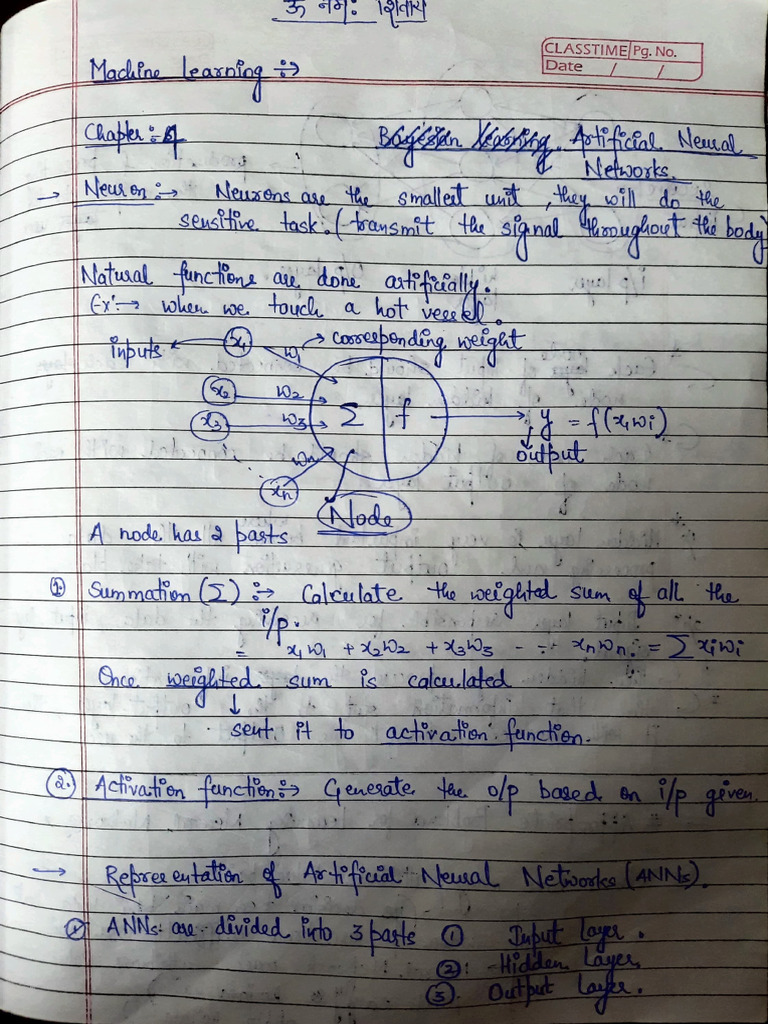 ॐ नमः शिवाय
CLASSTIME Pg. No.
Date / /
Machine Learning :→
Chapter :- 4 Bayesian Learning Artificial Neural
Networks.
→ Neuron :→ Neurons are the smallest unit, they will do the
sensitive task. (transmit the signal throughout the body)
Natural functions are done artificially.
Ex:→ when we touch a hot vessel.
inputs x1 w1 → corresponding weight
x2 w2
x3 w3 Σ f y = f(xiwi)
output
wn
xn Node
A node has 2 parts
1. Summation (Σ) :→ Calculate the weighted sum of all the
i/p.
= x1w1 + x2w2 + x3w3 - - - xnwn. = Σxiwi
Once weighted sum is calculated
↓
sent it to activation function.
2. Activation function :→ Generate the o/p based on i/p given.
→ Represntation of Artificial Neural Networks (ANNs).
ANNs are divided into 3 parts 1 Input layer.
2: Hidden Layer.
3. Output Layer.